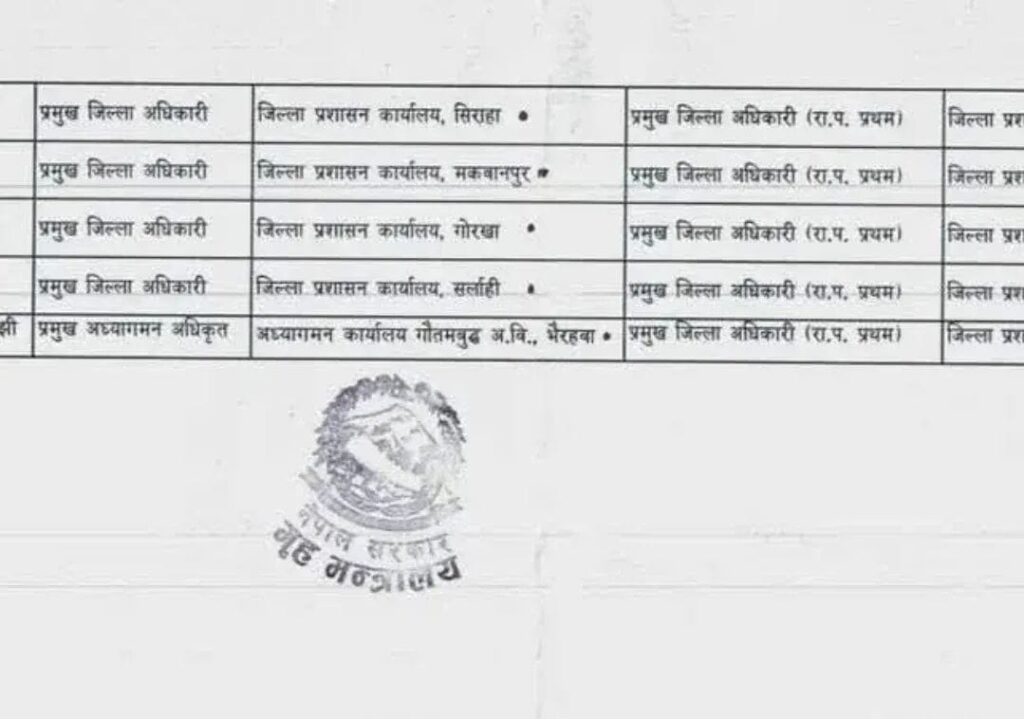 प्रमुख जिल्ला अधिकारी जिल्ला प्रशासन कार्यालय, सिराहा प्रमुख जिल्ला अधिकारी (रा.प. प्रथम) जिल्ला
प्रमुख जिल्ला अधिकारी जिल्ला प्रशासन कार्यालय, मकवानपुर प्रमुख जिल्ला अधिकारी (रा.प. प्रथम) जिल्ला
प्रमुख जिल्ला अधिकारी जिल्ला प्रशासन कार्यालय, गोरखा प्रमुख जिल्ला अधिकारी (रा.प. प्रथम) जिल्ला
प्रमुख जिल्ला अधिकारी जिल्ला प्रशासन कार्यालय, सर्लाही प्रमुख जिल्ला अधिकारी (रा.प. प्रथम) जिल्ला
प्रमुख अध्यागमन अधिकृत अध्यागमन कार्यालय गौतमबुद्ध अ.वि., भैरहवा प्रमुख जिल्ला अधिकारी (रा.प. प्रथम) जिल्ला
नेपाल सरकार
गृह मन्त्रालय